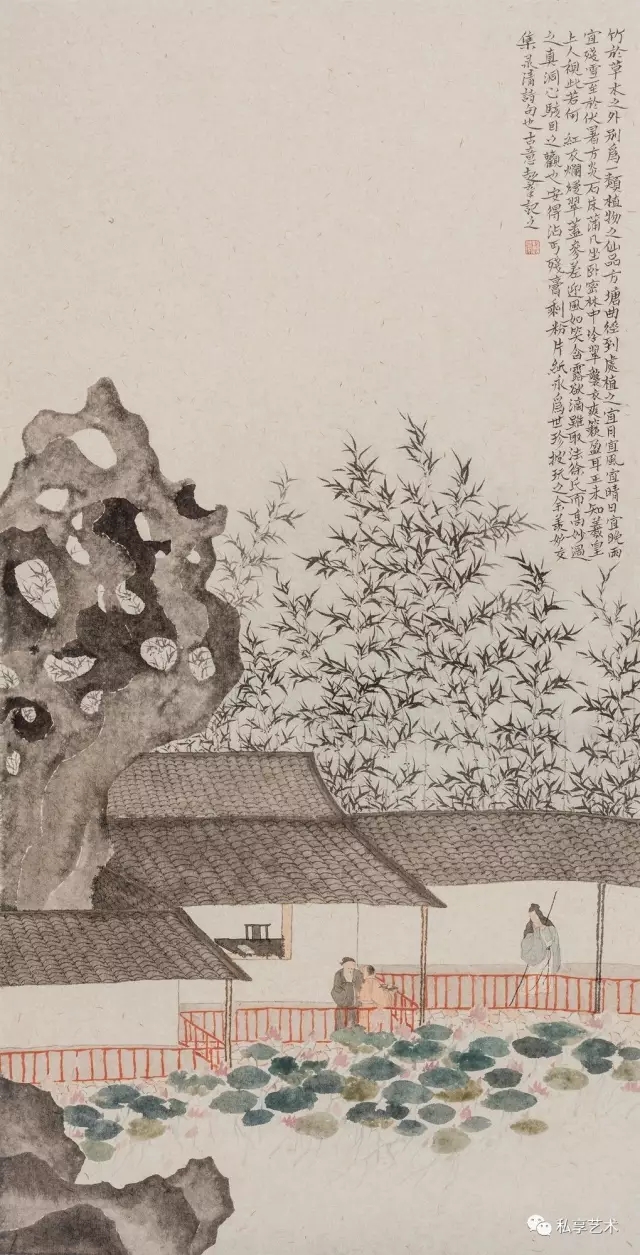 竹於草木之外別爲一類植物之仙品方塘曲徑到處植之宜月宜風宜晴日宜晚雨
宜殘雪至於伏暑方炎石床蒲几坐卧密林中冷翠襲衣爽籟盈耳正未知羲皇
上人視此若何紅衣爛熳翠蓋參差迎風如笑含露欲滴雖取法徐氏而高妙過
之真洞心駭目之觀也安得沾丐殘膏剩粉片紙永爲世珍玩之余
集清詩句也古意記之
私享艺术